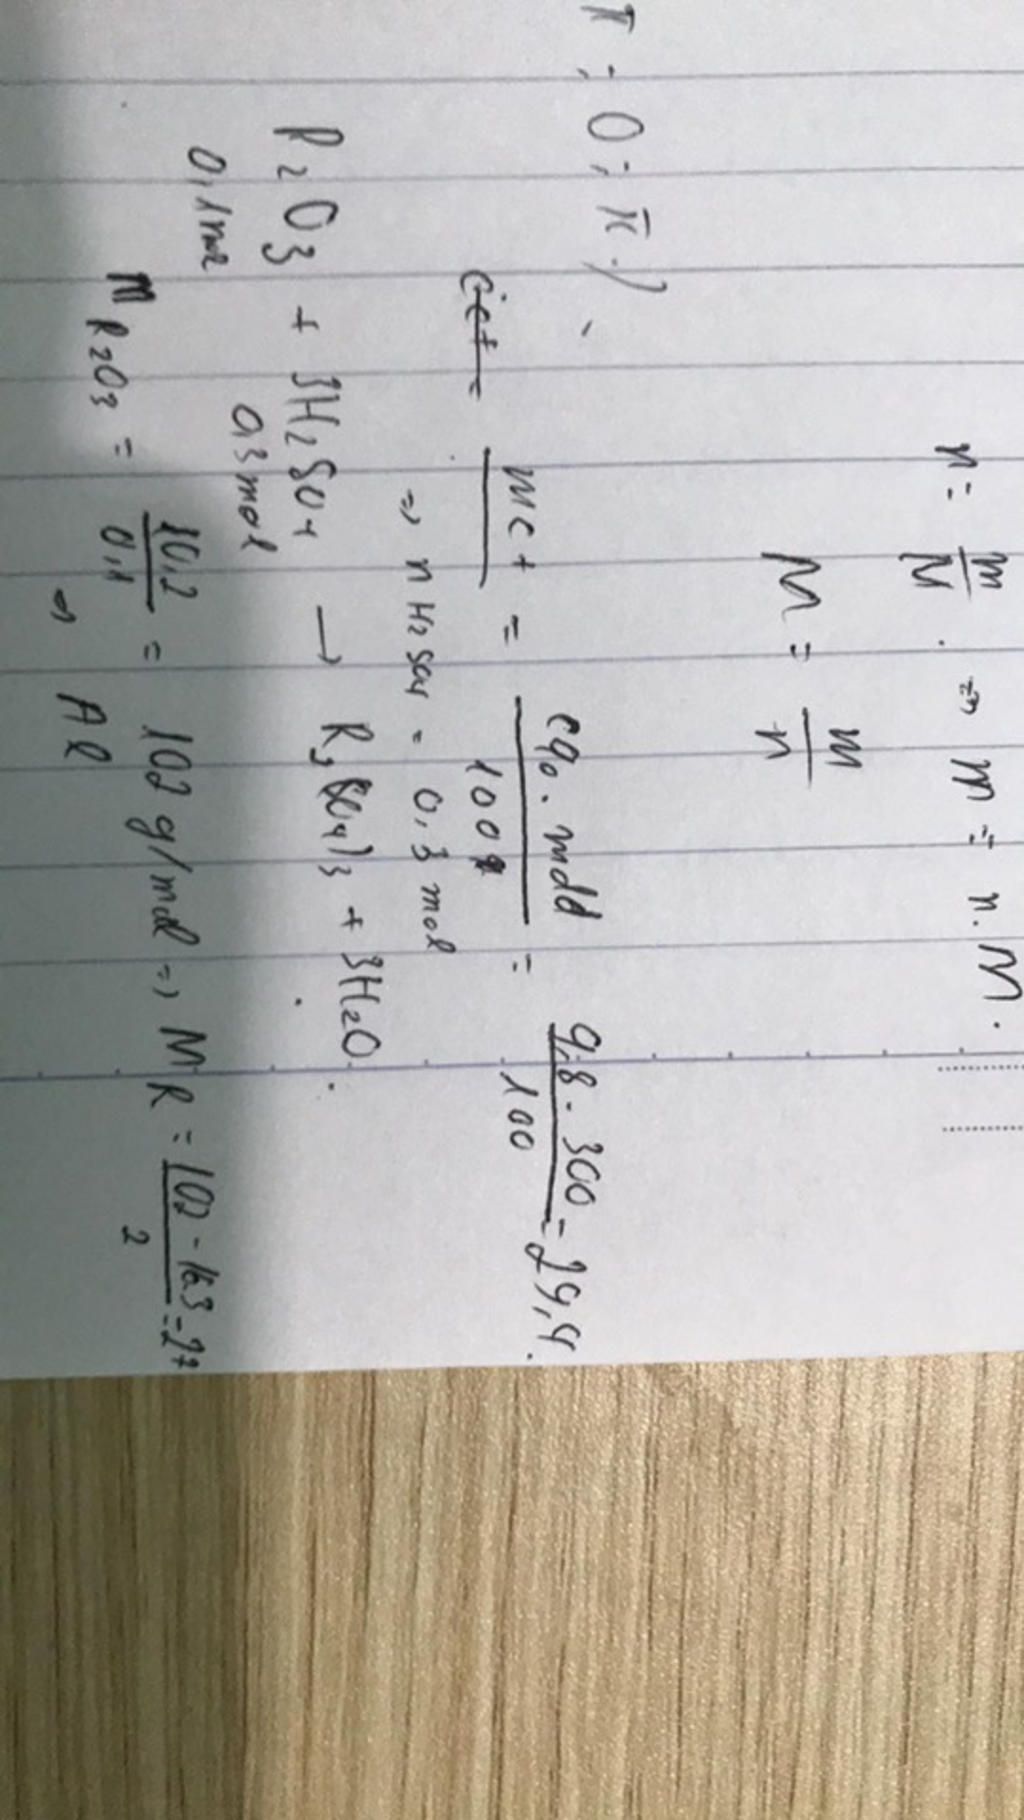 n = m/M . => m = n.M.
M = m/n
π ; 0 ; π .)
mct = c%.mdd/100% = 9,8 . 300/100 = 29,4.
=> n H2SO4 = 0,3 mol
R2O3 + 3H2SO4 → R2(SO4)3 + 3H2O.
0,1 mol 0,3 mol
M R2O3 = 10,2/0,1 = 102 g/mol => MR = 102 - 16.3/2 = 27
=> Al